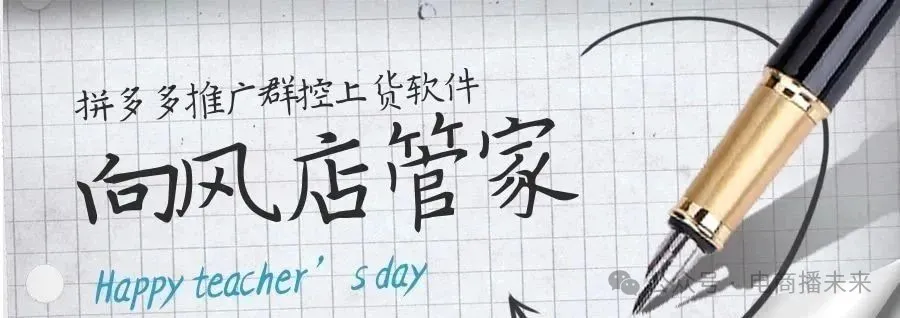 拼多多推广群控上货软件
向风店管家
Happy teacher’s day
公众号·电商播未来